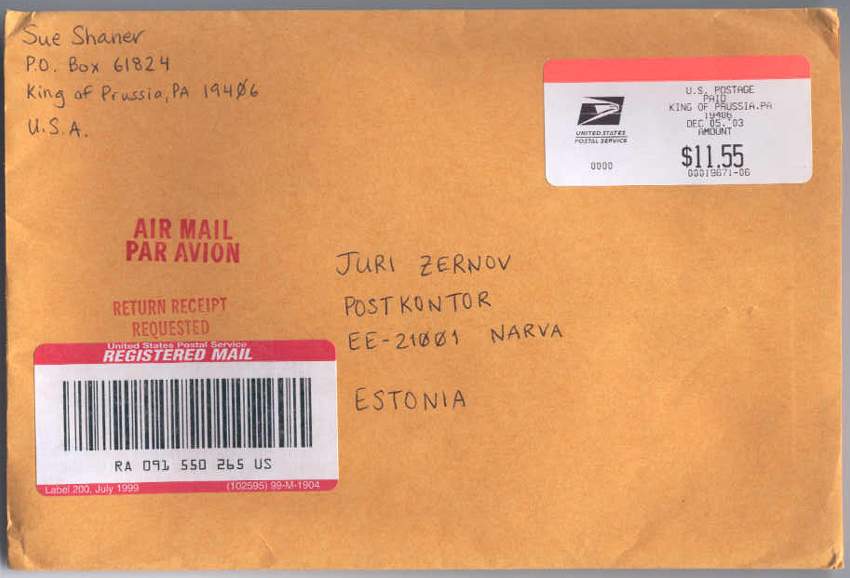 Sue Shaner
P.O. Box 61824
King of Prussia, PA 19406
U.S.A.
UNITED STATES
POSTAL SERVICE
0000
U.S. POSTAGE
PAID
KING OF PRUSSIA.PA
19406
DEC 05.'03
AMOUNT
$11.55
00019671-06
AIR MAIL
PAR AVION
RETURN RECEIPT
REQUESTED
JURI ZERNOV
POSTKONTOR
EE-21001 NARVA
ESTONIA
United States Postal Service
REGISTERED MAIL
RA 091 550 265 US
Label 200, July 1999
(102595) 99-M-1904